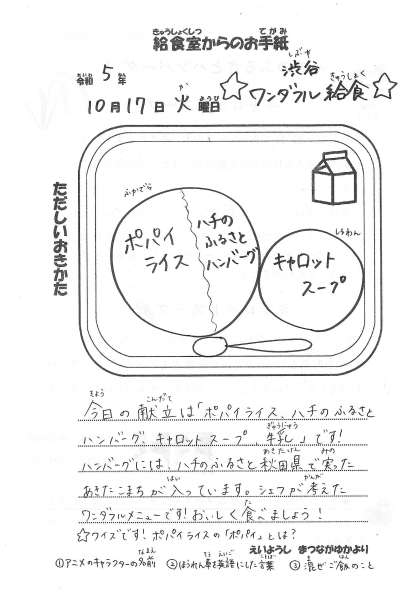 給食室からのお手紙
令和 5 年
10月 17日 火 曜日
☆渋谷
ワンダフル給食☆
ただしいおきかた
ふかざら
ポパイ
ライス
ハチの
ふるさと
ハンバーグ
しるわん
キャロット
スープ
今日の献立は「ポパイライス、ハチのふるさと
ハンバーグ、キャロットスープ、牛乳」です!
ハンバーグには、ハチのふるさと秋田県で実った
あきたこまちが入っています。シェフが考えた
ワンダフルメニューです!おいしく食べましょう!
☆クイズです!ポパイライスの「ポパイ」とは?
えいようし まつながゆかより
①アニメのキャラクターの名前 ②ほうれん草を英語にした言葉 ③混ぜご飯のこと